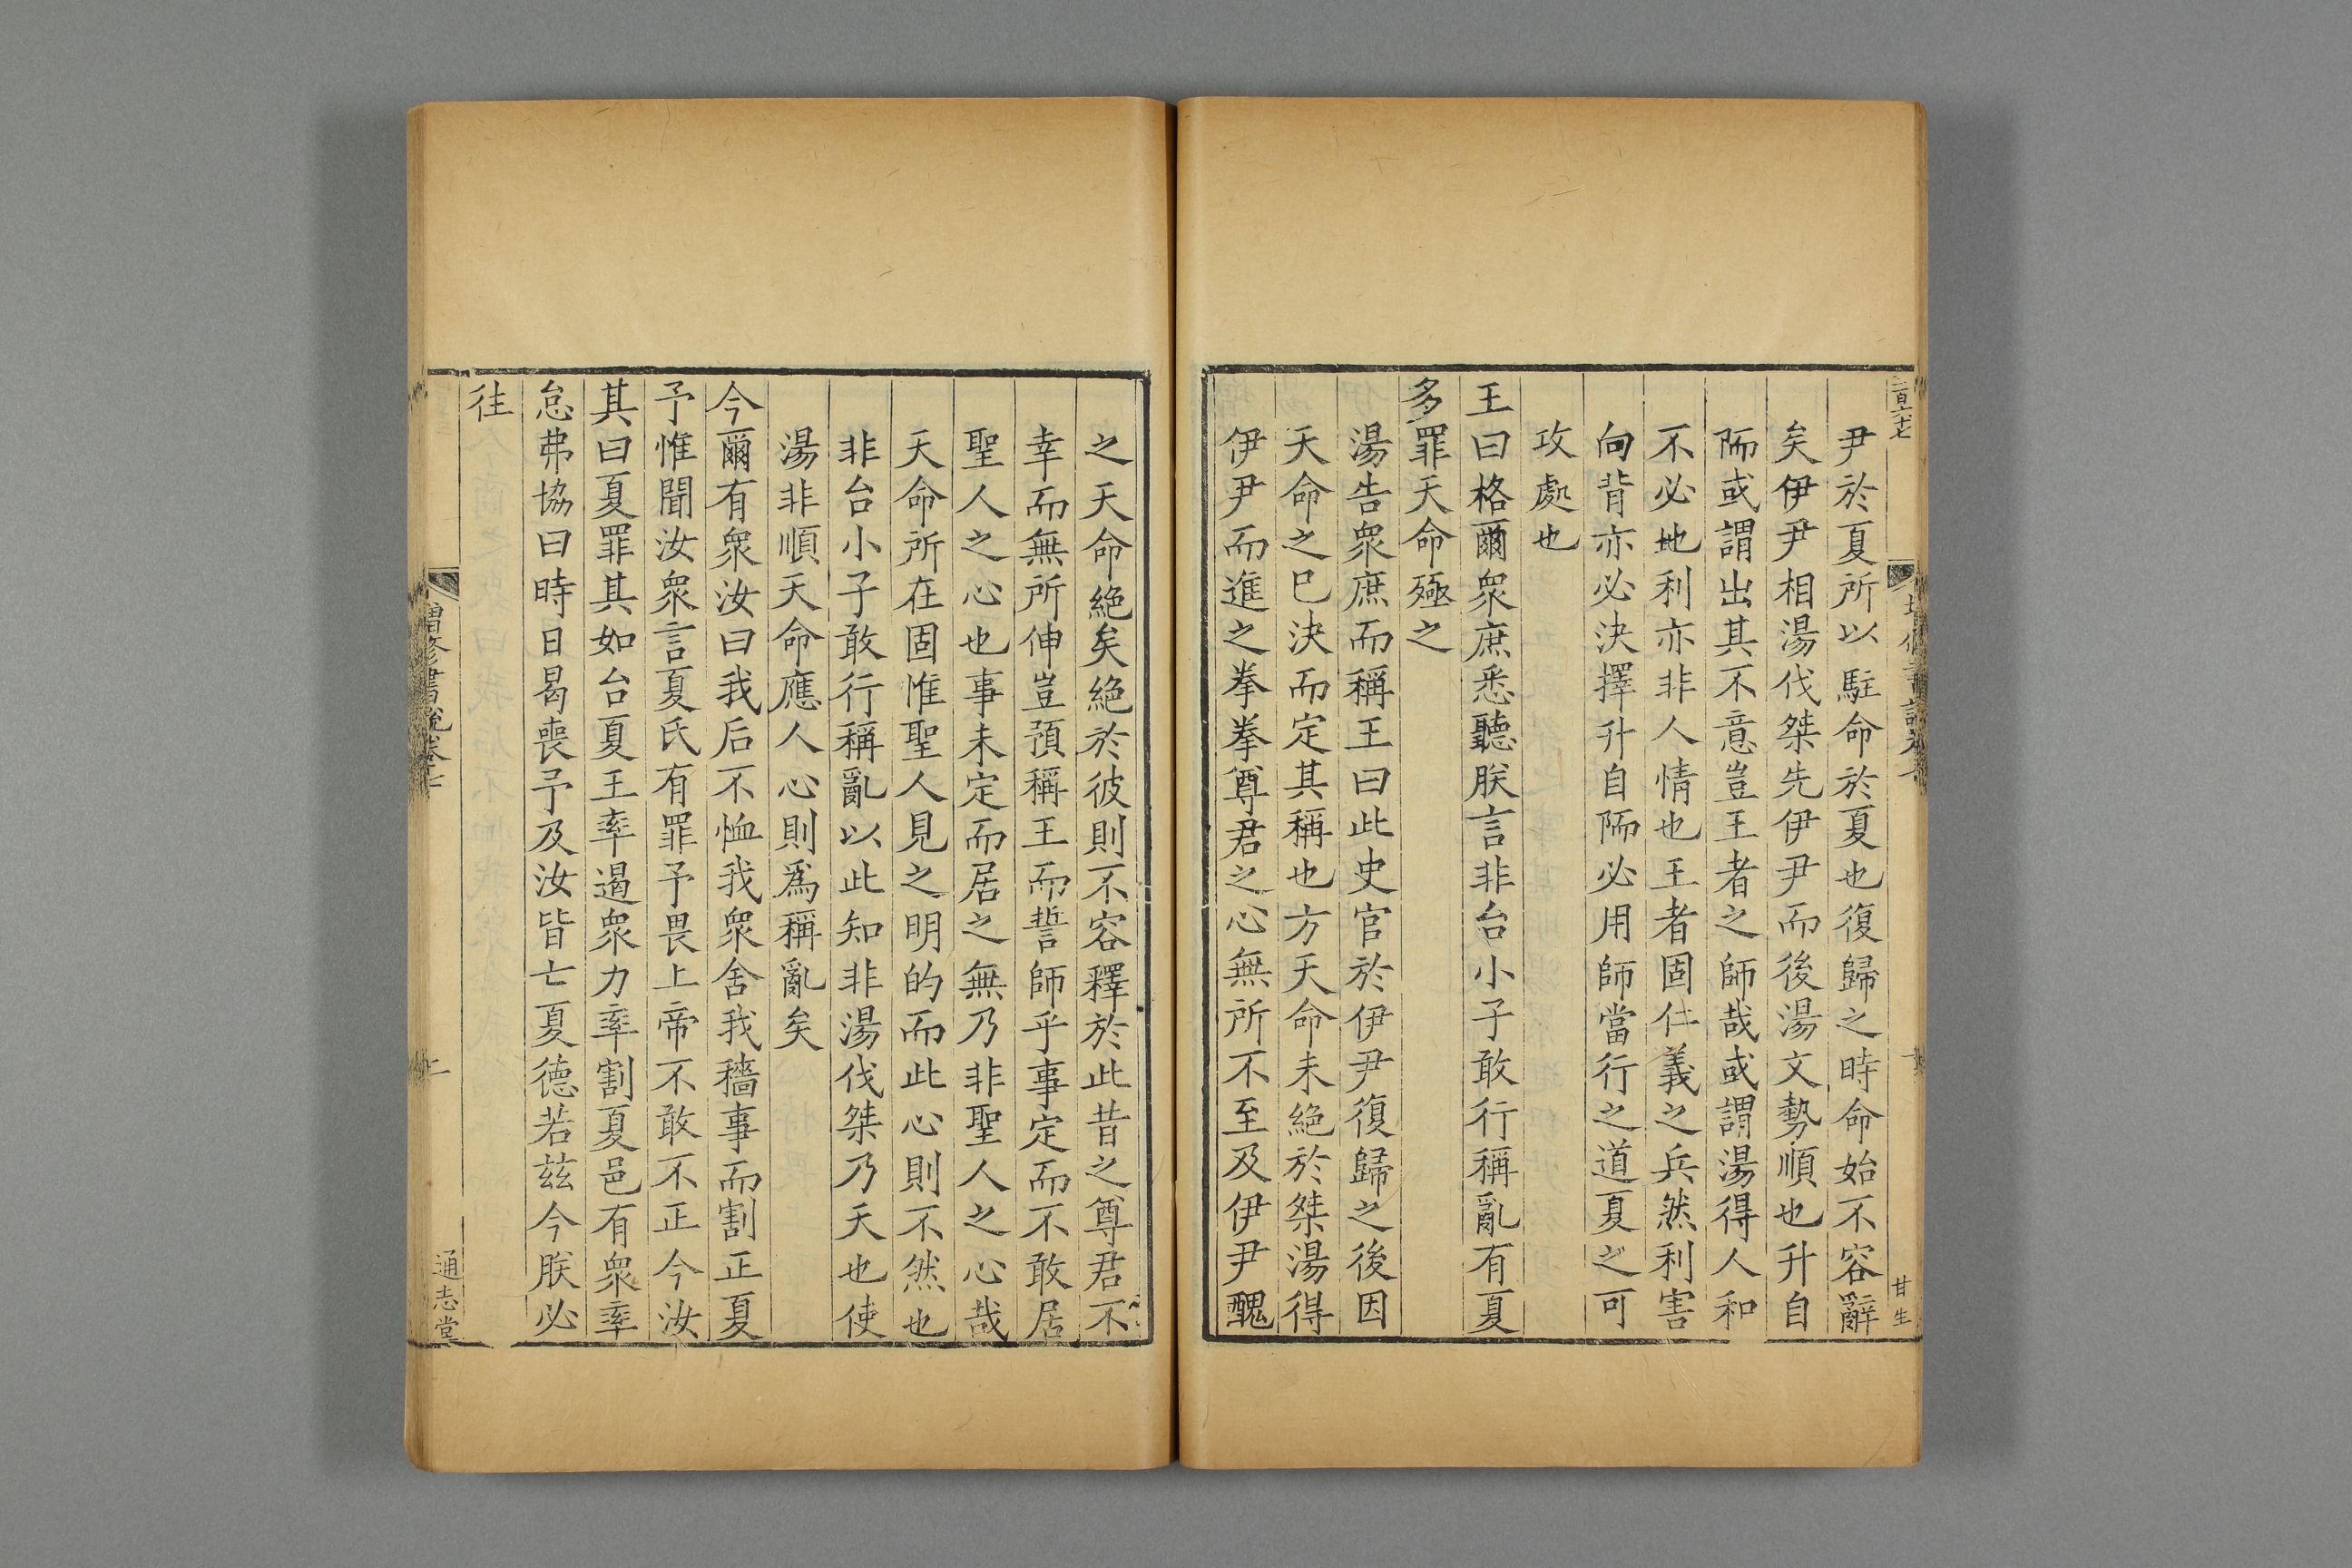 尹於夏所以駐命於夏也復歸之時命始不容辭
矣伊尹相湯伐桀先伊尹而後湯文勢順也升自
陑或謂出其不意豈王者之師哉或謂湯得人和
不必地利亦非人情也王者固仁義之兵然利害
向背亦必決擇升自陑必用師當行之道夏之可
攻處也
王曰格爾衆庶悉聽朕言非台小子敢行稱亂有夏
多罪天命殛之
湯告衆庶而稱王曰此史官於伊尹復歸之後因
天命之已決而定其稱也方天命未絕於桀湯得
伊尹而進之拳拳尊君之心無所不至及伊尹醜
甘生
之天命絕矣絕於彼則不容釋於此昔之尊君不
幸而無所伸豈預稱王而誓師乎事定而不敢居
聖人之心也事未定而居之無乃非聖人之心哉
天命所在固惟聖人見之明的而此心則不然也
非台小子敢行稱亂以此知非湯伐桀乃天也使
湯非順天命應人心則爲稱亂矣
今爾有衆汝曰我后不恤我衆舍我穡事而割正夏
予惟聞汝衆言夏氏有罪予畏上帝不敢不正今汝
其曰夏罪其如台夏王率遏衆力率割夏邑有衆率
怠弗協曰時日曷喪予及汝皆亡夏德若茲今朕必
往
增修書說卷
通志堂